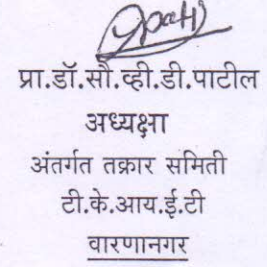 प्रा.डॉ.सौ.व्ही.डी.पाटील
अध्यक्षा
अंतर्गत तक्रार समिती
टी.के.आय.ई.टी
वारणानगर